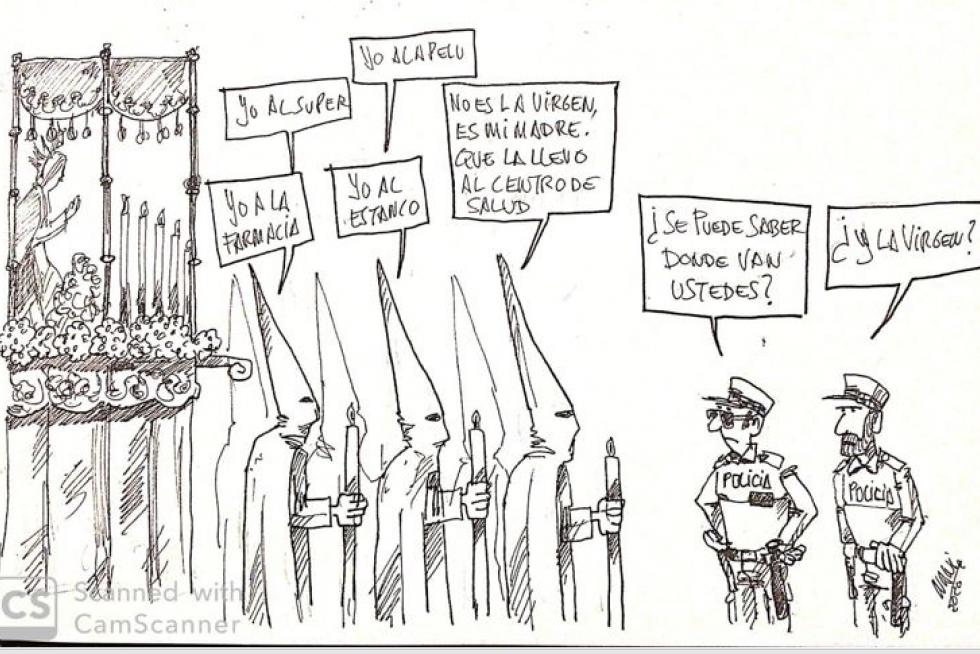 YO A LA PELU
YO AL SUPER
NO ES LA VIRGEN,
ES MI MADRE.
QUE LA LLEVO
AL CENTRO DE
SALUD
YO A LA
FARMACIA
YO AL
ESTANCO
¿SE PUEDE SABER
DONDE VAN
USTEDES?
¿Y LA VIRGEN?
POLICIA
POLICIA
CS Scanned with
CamScanner